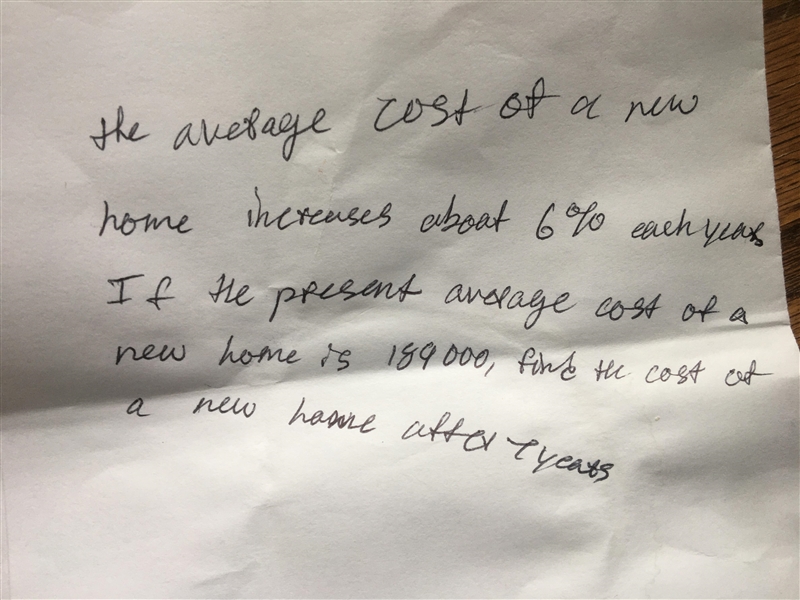 the average cost of a new
home increases about 6% each years
If the present average cost of a
new home is 189000, find the cost of
a new home after 7 years